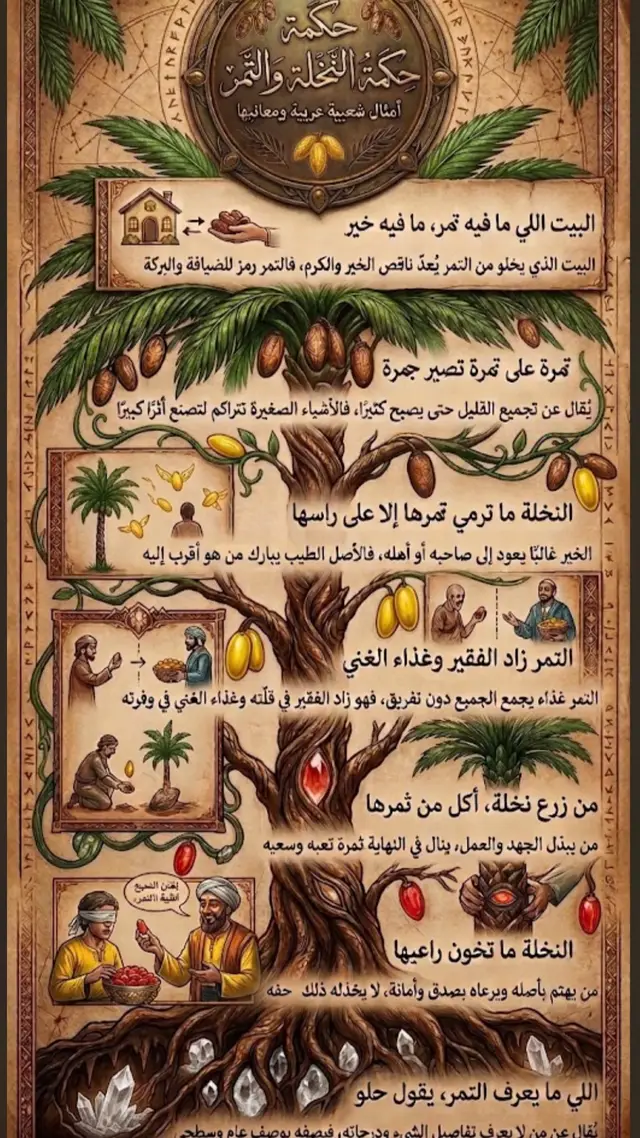 حكمة
حِكمَةُ النَّخْلَة وَالتَّمر
أمثال شعبية عربية ومعانيها
البيت اللي ما فيه تمر، ما فيه خير
البيت الذي يخلو من التمر يُعدّ ناقص الخير والكرم، فالتمر رمز للضيافة والبركة
تمرة على تمرة تصير جمرة
يُقال عن تجميع القليل حتى يصبح كثيرًا، فالأشياء الصغيرة تتراكم لتصنع أثرًا كبيرًا
النخلة ما ترمي تمرها إلا على راسها
الخير غالبًا يعود إلى صاحبه أو أهله، فالأصل الطيب يبارك من هو أقرب إليه
التمر زاد الفقير وغذاء الغني
التمر غذاء يجمع الجميع دون تفريق، فهو زاد الفقير في قلّته وغذاء الغني في وفرته
من زرع نخلة، أكل من ثمرها
من يبذل الجهد والعمل، ينال في النهاية ثمرة تعبه وسعيه
النخلة ما تخون راعيها
من يهتم بأصله ويرعاه بصدق وأمانة، لا يخذله ذلك حفه
اللي ما يعرف التمر، يقول حلو
يُقال عن من لا يعرف تفاصيل الشيء ودرجاته، فيصفه بوصف عام وسطحي